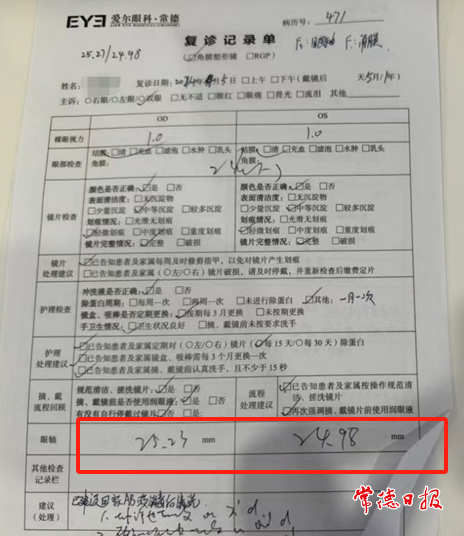 EYE 爱尔眼科·常德
病历号： 471
25.27/24.98
复诊记录单
☑角膜塑形镜 □RGP）
姓名：
复诊日期： □上午 □下午（戴镜后 天/ 年）
主诉：○右眼/○左眼/○双眼 □无不适 □眼红 □眼痛 □畏光 □流泪 其他
OD OS
裸眼视力 1.0 1.0
眼部检查
结膜：□清 □充血 □滤泡 □水肿 □乳头
角膜：
结膜：□清 □充血 □滤泡 □水肿 □乳头
角膜：
镜片检查
颜色是否正确：☑是 □否
表面清洁度：□无沉淀物
□少量沉淀 ☑中等沉淀 □较多沉淀
划痕情况：□光滑无划痕
☑轻微划痕 □中度划痕 □重度划痕
镜片完整情况：☑完整 □破损
颜色是否正确：☑是 □否
表面清洁度：□无沉淀物
□少量沉淀 ☑中等沉淀 □较多沉淀
划痕情况：□光滑无划痕
☑轻微划痕 □中度划痕 □重度划痕
镜片完整情况：☑完整 □破损
镜片
处理建议
☑已告知患者及家属每周及时修剪指甲，以免对镜片产生划痕
□已告知患者及家属（○左/○右）镜片破损，请及时停戴，并重新检查后缴费定片
护理检查
冲洗液是否正确：☑是 □否
除蛋白周期：□每周一次 □两周一次 □未进行除蛋白 ☑其他：一月一次
镜盒、吸棒是否定期更换：☑按期每3月更换 □未按期更换
手卫生情况：☑卫生状况良好 □摘、戴镜前未按要求洗手
护理
处理建议
☑已告知患者及家属定期对（○左/○右）镜片（○每15天/○每30天）除蛋白
□已告知患者及家属镜盒、吸棒需每3个月更换一次
□已告知患者及家属摘、戴镜前认真洗手，且不少于15秒
摘、戴
流程回顾
规范清洁、搓洗镜片：☑是 □否
摘、戴镜前是否使用润眼液：☑是 □否
有没有自行停戴过镜片：☑否 □是：
流程
处理建议
☑已告知患者及家属按操作规范清
洁、搓洗镜片
☑再次强调摘、戴镜片前使用润眼液
眼轴 25.23 mm 24.98 mm
其他检查
记录栏
建议
（处理）
常德日报